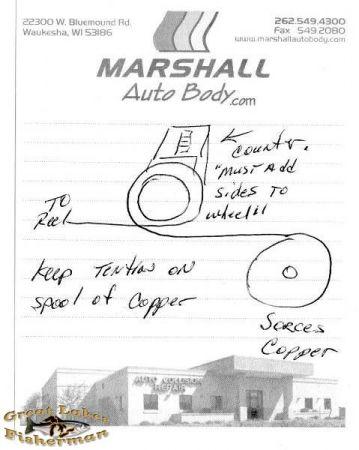 22300 W. Bluemound Rd.
Waukesha, WI 53186
262.549.4300
Fax 549.2080
www.marshallautobody.com
MARSHALL
Auto Body.com
Counter.
"Must Add
Sides To
wheel"
TO
Reel
Keep Tention on
spool of Copper
Sorces
Copper
AUTO COLLISION
REPAIR
Great Lakes
Fisherman